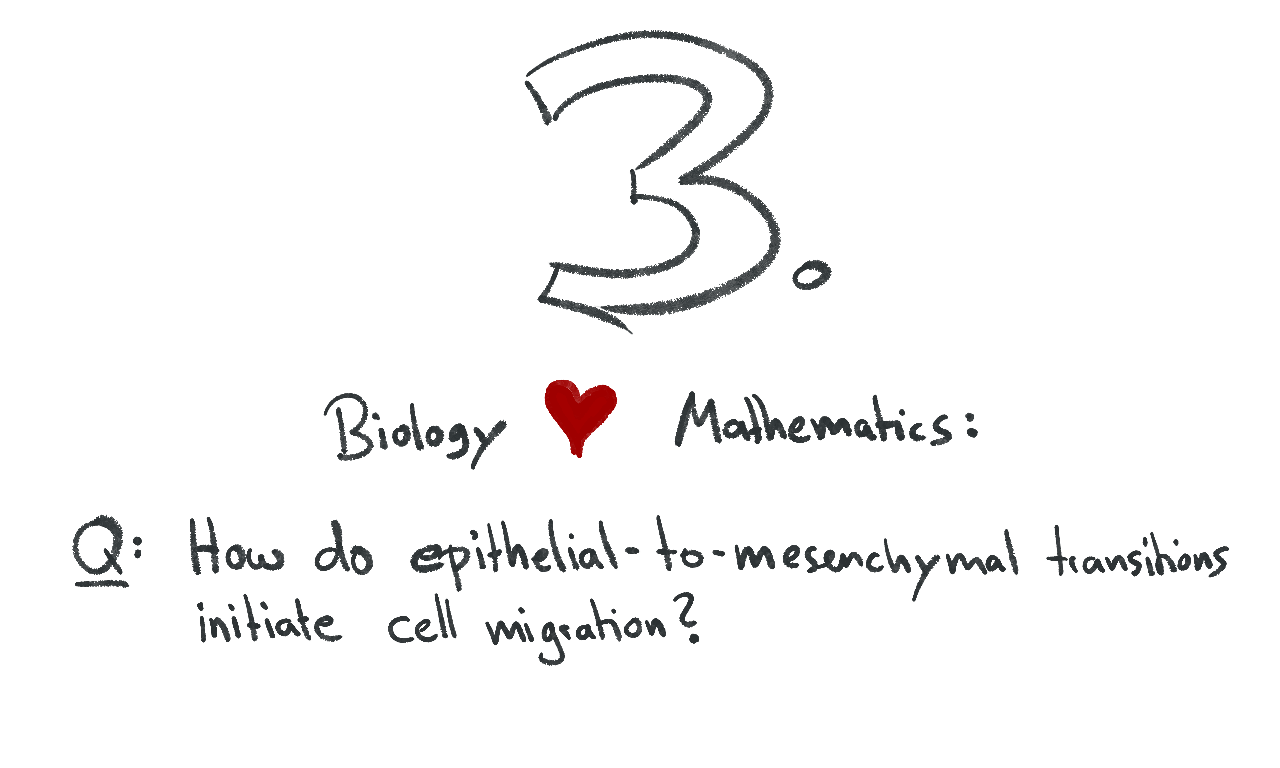 3.
Biology ♥ Mathematics:
Q: How do epithelial-to-mesenchymal transitions
initiate cell migration?